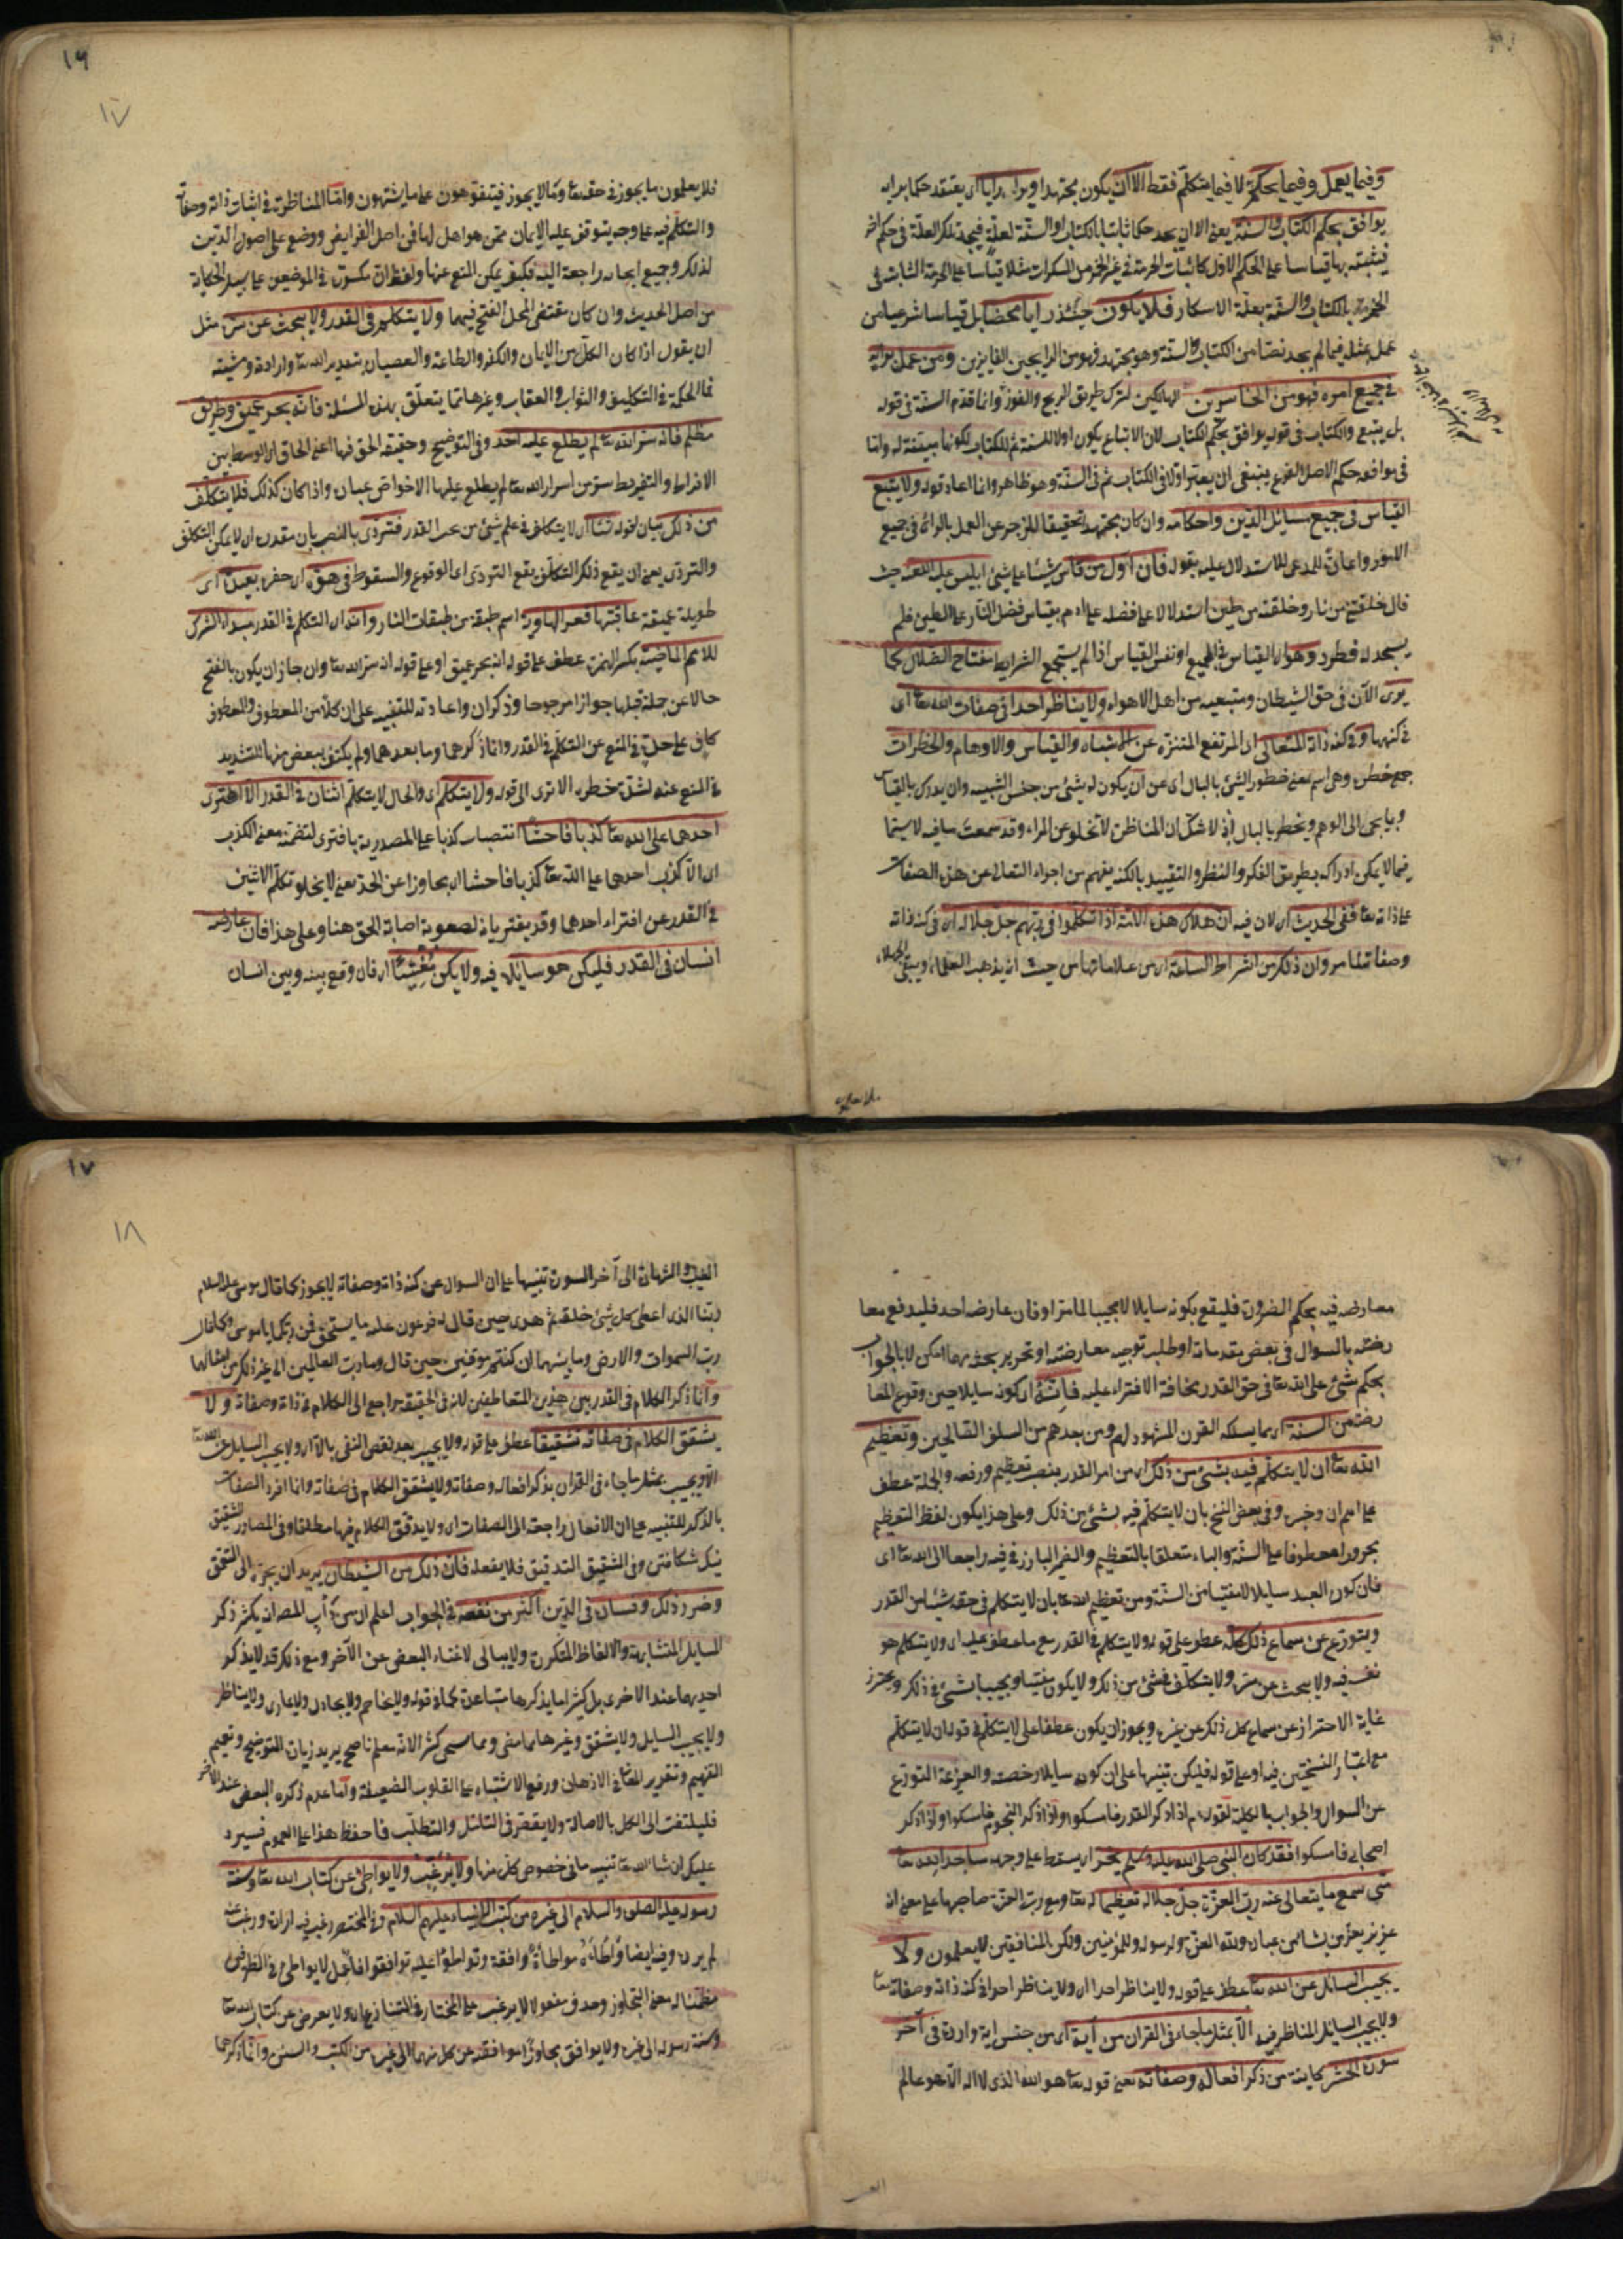 وفيما يعمل وفيما يحكم لا فيما يتكلم فقط الا ان يكون مجتهدا ويرا برايا اى يعتقد حكما برايه
يوافق بحكم الكتاب والسنة يعنى الا ان يجد حكما ثابتا بالكتاب او السنة لعلة فيجد تلك العلة فى حكم اخر
فيثبته بها قياسا على الحكم الاول كاثبات الحرمة فى غير الخمر من المسكرات مثلا قياسا على الحرمة الثابتة فى
الخمر بالكتاب والسنة بعلة الاسكار فلا يكون حينئذ رايا محضا بل قياسا شرعيا من
عمل بمثله فيما لم يجد نصا من الكتاب والسنة وهو مجتهد فهو من الرابحين الفايزين ومن عمل برايه
فى جميع امره فهو من الخاسرين الهالكين لترك طريق الربح والفوز وانما قدم السنة فى قوله
بل يتبع والكتاب فى قوله يوافق بحكم الكتاب لان الاتباع يكون اولا للسنة ثم للكتاب لكونها مبينة له واما
فى موافقة حكم الاصل الفرع ينبغى ان يعتبر اولا فى الكتاب ثم فى السنة وهو ظاهر وانما اعاد قوله ولا يتبع
القياس فى جميع مسايل الدين واحكامه وان كان مجتهدا تحقيقا للزجر عن العمل بالراى فى جميع
الامور واعانة للمدعى للاستدلال عليه بقوله فان اول من قاس شيئا على شئ ابليس عليه اللعنة حيث
قال خلقتنى من نار وخلقته من طين استدلالا على فضله على ادم بقياس فضل النار على الطين فلم
يسجد له فطرد وهو اى القياس فى الجميع او نفس القياس اذا لم يستجمع الشرايط مفتاح الضلال كما
يرى الآن فى حق الشيطان ومتبعيه من اهل الاهواء ولا يناظر احدا فى صفات الله تعا اى
فى كنهها وفى كنه ذاته المتعالى اى المرتفع المتنزه عن الاشباه والقياس والاوهام والخطرات
جمع خطرة وهى اسم بمعنى خطور الشئ بالبال اى عن ان يكون له شئ من جنس الشبيه وان يدرك بالقياس
وبما يجى الى الوهم ويخطر بالبال اذ لا شك ان المناظرة لا تخلو عن المراء وقد سمعت ما فيه لا سيما
فيما لا يمكن ادراكه بطريق الفكر والنظر والتقييد بالكنه يفهم من اجراء التعالى عن هذه الصفات
على ذاته تعا ففى الحديث اى لان فيه ان هلاك هذه الامة اذا تكلموا فى ربهم جل جلاله اى فى كنه ذاته
وصفاته لما مر وان ذلك من اشراط الساعة اى من علاماتها من حيث انه يذهب العلماء ويبقى الجهلاء
١٦
١٧
فلا يعلمون ما يجوز فى حقه تعا وما لا يجوز فيتفوهون على ما يشتهون واما المناظرة فى اثبات ذاته وصفاته
والتكلم فيه على وجه يتوقف عليه الايمان ممن هو اهل لها فمن اصل الفرايض ووضع على اصول الدين
لذلك وجميع ابحاثه راجعة اليه فكيف يمكن المنع عنها ولفظ ان مكسورة فى الموضعين على سبيل الحكاية
من اصل الحديث وان كان مقتضى المحل الفتح فيهما ولا يتكلم فى القدر ولا يبحث عن سره مثل
ان يقول اذا كان الكل من الايمان والكفر والطاعة والعصيان بتقدير الله تعا وارادته ومشيته
فما الحكمة فى التكليف والثواب والعقاب وغيرها مما يتعلق بهذه المسئلة فانه بحر عميق وطريق
مظلم فانه سر الله تعا لم يطلع عليه احد وفى التوضيح وحقيقة الحق فيها اعنى الحاق الوسط بين
الافراط والتفريط سر من اسرار الله تعا لم يطلع عليها الا خواص عباده واذا كان كذلك فلا يتكلف
من ذلك بيان لقوله شيئا اى لا يتكلف فى علم شئ من بحر القدر فتتردى بالنصب بان مقدرة اى لا يمكن التكلف
والتردى يعنى ان يقع ذلك التكلف يقع التردى اى الوقوع والسقوط فى هوة اى حفرة بعيدة اى
طويلة عميقة عاقبتها قعر الهاوية اسم طبقة من طبقات النار وانه اى التكلم فى القدر مبدا الشرك
للامم الماضية بكسر الهمزة عطف على قوله انه بحر عميق او على قوله انه سر الله تعا وان جاز ان يكون بالفتح
حالا عن جملة قبلها جوازا مرجوحا وذكر ان واعادته للتنبيه على ان كلا من المعطوف والمعطوف
كاف على حدة فى المنع عن التكلم فى القدر وانما ذكرهما وما بعدهما ولم يكتف ببعض منها للتشديد
فى المنع عنه لشدة خطره الا ترى الى قوله ولا يتكلم اى والحال لا يتكلم اثنان فى القدر الا افترى
احدهما على الله تعا كذبا فاحشا انتصاب كذبا على المصدرية بافترى لتضمنه معنى الكذب
اى الا كذب احدهما على الله تعا كذبا فاحشا اى مجاوزا عن الحد يعنى لا يخلو تكلم الاثنين
فى القدر عن افتراء احدهما وقد يفتريان لصعوبة اصابة الحق هنا وعلى هذا فان عارضه
انسان فى القدر فليكن هو سايلا فيه ولا يكن مفتيا اى فان وقع بينه وبين انسان
معارضة فيه بحكم الضرورة فليقع بكونه سايلا لا مجيبا لما مر او فان عارضه احد فليدفع معا
رضته بالسوال فى بعض مقدماته او طلب توجيه معارضته او تحرير بحثه مهما امكن لا بالجواب
بحكم شئ على الله تعا فى حق القدر مخافة الافتراء عليه فانه اى كونه سايلا حين وقوع المعا
رضة من السنة اى مما يسلكه القرن المشهود لهم ومن بعدهم من السلف الصالحين وتعظيم
الله تعا ان لا يتكلم فيه بشئ من ذلك اى من امر القدر بنصب تعظيم ورفعه والجملة عطف
على اسم ان وخبره وفى بعض النسخ بان لا يتكلم فيه بشئ من ذلك وعلى هذا يكون لفظ التعظيم
مجرورا معطوفا على السنة والباء متعلقا بالتعظيم والضمير البارز فى فيه راجعا الى الله تعا اى
فان كون العبد سايلا لا مفتيا من السنة ومن تعظيم الله تعا بان لا يتكلم فى حقه شيئا من القدر
ويتورع عن سماع ذلك كله عطف على قوله ولا يتكلم فى القدر مع ما عطف عليه اى ولا يتكلم هو
نفسه فيه ولا يبحث عن سره ولا يتكلف فى شئ من ذلك ولا يكون مفتيا ومجيبا بشئ فى ذلك ويحترز
غاية الاحتراز عن سماع كل ذلك عن غيره ويجوز ان يكون عطفا على لا يتكلم فى قوله ان لا يتكلم
مع اعتبار النسختين فيه او على قوله فليكن تنبيها على ان كونه سايلا رخصة والعزيمة التورع
عن السوال والجواب بالكلية لقوله م اذا ذكر القدر فامسكوا واذا ذكر النجوم فامسكوا واذا ذكر
اصحابى فامسكوا فقد كان النبى صلى الله عليه وسلم يخر اى يسقط على وجهه ساجدا لله تعا
متى سمع ما يتعالى عنه رب العزة جل جلاله تعظيما له تعا ومع رب العزة صاحبها على معنى انه
عزيز يعز من يشاء من عباده ولله العزة ولرسوله وللمؤمنين ولكن المنافقين لا يعلمون ولا
يجيب السائل عن الله تعا عطف على قوله ولا يناظر احدا اى ولا يناظر احدا فى كنه ذاته وصفاته تعا
ولا يجيب السايل المناظر فيه الا بمثل ما جاء فى القران من آية اى من جنس اية واردة فى آخر
سورة الحشر كاينة من ذكر افعاله وصفاته يعنى قوله تعا هو الله الذى لا اله الا هو عالم
الغيب
١٧
١٨
الغيب والشهادة الى آخر السورة تنبيها على ان السوال عن كنه ذاته وصفاته لا يجوز كما قال موسى عليه السلام
ربنا الذى اعطى كل شئ خلقه ثم هدى حين قال له فرعون عليه ما يستحق فمن ربكما يا موسى وكما قال
رب السموات والارض وما بينهما ان كنتم موقنين حين قال وما رب العالمين الى غير ذلك من امثالها
وانما ذكر الكلام فى القدر بين هذين المتعاطفين لانه فى الحقيقة راجع الى الكلام فى ذاته وصفاته ولا
يشقق الكلام فى صفاته تشقيقا عطف على قوله ولا يجيب بعد نقض النفى بالا اى ولا يجيب السايل عن الله تعا
الا ويجيب بمثل ما جاء فى القران بذكر افعاله وصفاته ولا يشقق الكلام فى صفاته وانما افرد الصفات
بالذكر للتنبيه على ان الافعال راجعة الى الصفات اى ولا يدقق الكلام فيها مطلقا وفى المصادر التشقيق
نيك شكافتن وفى التشقيق التدقيق فلا يفعله فان ذلك من الشيطان يريد ان يجره الى التعمق
وضرر ذلك وفساده فى الدين اكثر من نفعه فى الجواب اعلم ان من دأب المص انه يكثر ذكر
المسايل المتشابهة والالفاظ المتكررة ولا يبالى لاغناء البعض عن الآخر ومع ذلك قد لا يذكر
احديهما عند الاخرى بل كثيرا ما يذكرها متباعدة كما فى قوله ولا يخاصم ولا يجادل ولا يمارى ولا يناظر
ولا يجيب السايل ولا يشقق وغيرها مما مضى ومما سيجى كثر الا انه معلم ناصح يريد زيادة التوضيح وتعميم
التفهيم وتقرير المعانى فى الاذهان ورفع الاشتباه على القلوب الضعيفة واما عدم ذكره البعض عند الآخر
فليلتفت الى الكل بالاصالة ولا يقصر فى التامل والتطلب فاحفظ هذا على العموم فسيرد
عليك ان شا الله تعا تنبيه ما فى خصوص كل منها ولا يرغب ولا يواطئ عن كتاب الله تعا وسنة
رسوله عليه الصلوة والسلام الى غيره من كتب الانبياء عليهم السلام وفى المختصر رغب فيه اراده ورغب عنه
لم يرده وفيه ايضا واطأه مواطأة وافقه وتواطؤا عليه توافقوا فاعمل لا يواطئ فى الظرفين
مظنا له معنى التجاوز وحذف مفعولا لا يرغب على المختار فى التنازع اى ولا يعرض عن كتاب الله تعا
وسنة رسوله الى غيره ولا يوافق مجاوزا موافقته عن كل منهما الى غيره من الكتب والسنن وانما ذكرهما